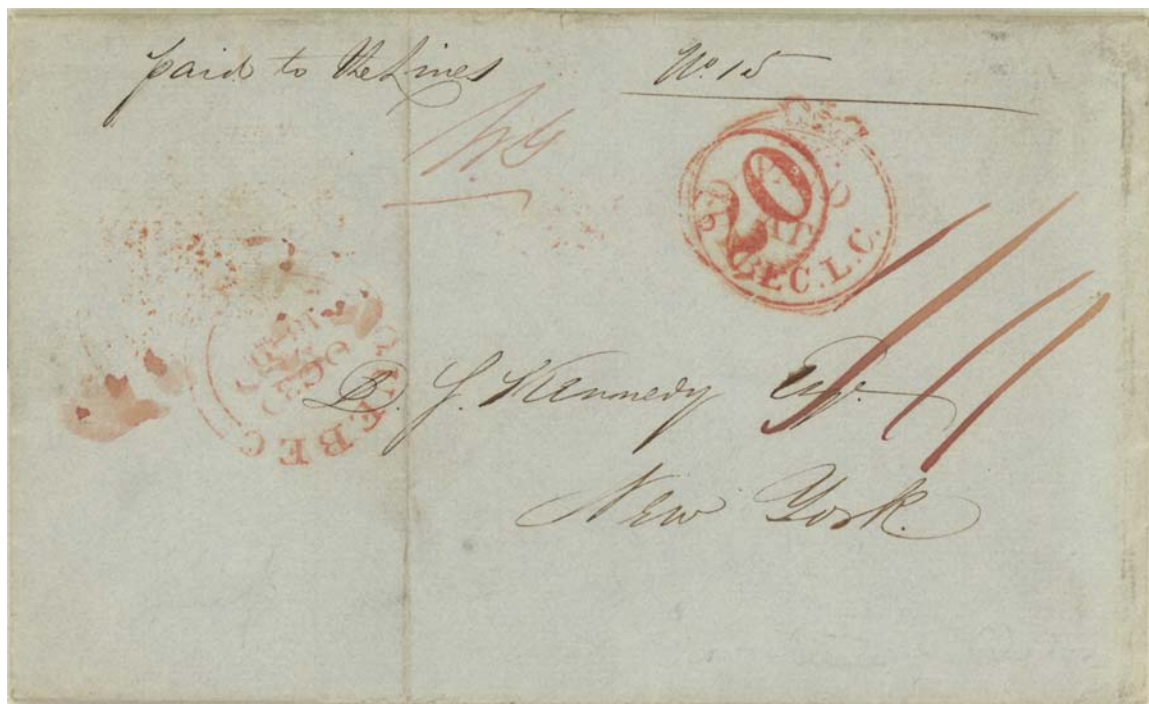 paid to the Lines
No. 15
20
BEC. L.C.
QUEBEC
D. J. Kennedy Esqr.
New York.